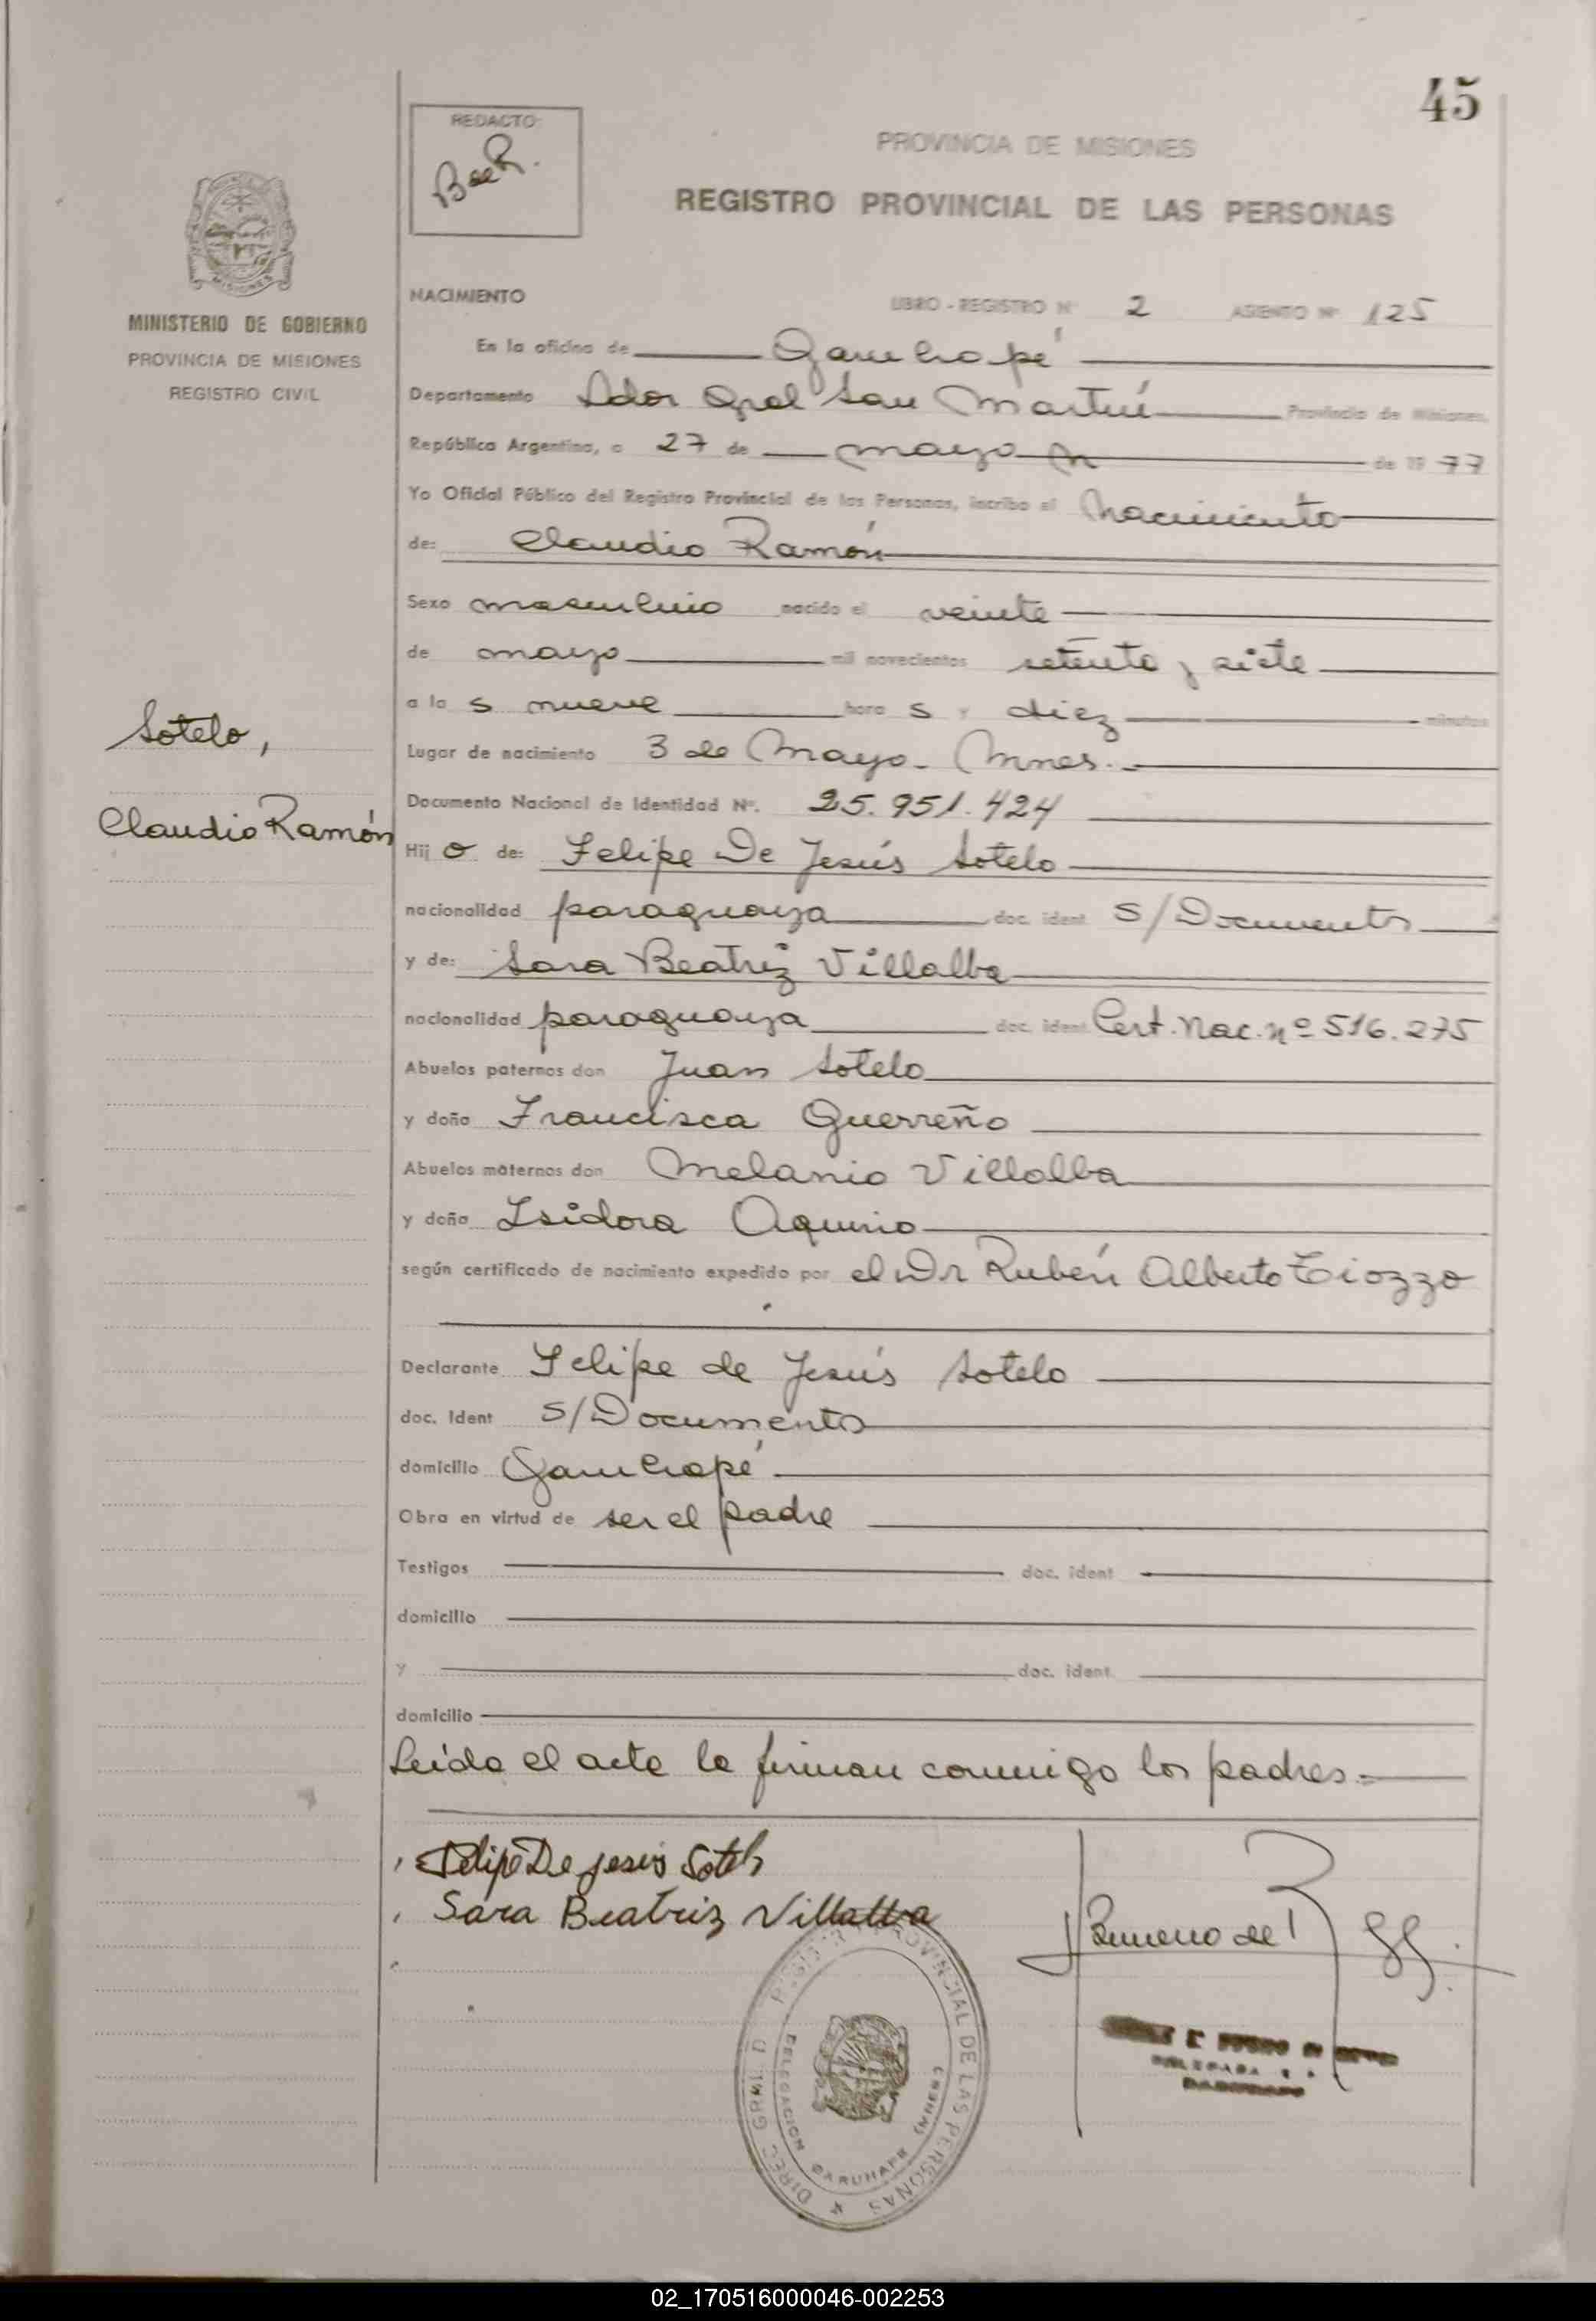 45
REDACTO:
BdeR.
PROVINCIA DE MISIONES
REGISTRO PROVINCIAL DE LAS PERSONAS
MISIONES
MINISTERIO DE GOBIERNO
PROVINCIA DE MISIONES
REGISTRO CIVIL
NACIMIENTO
LIBRO - REGISTRO Nº 2 ASIENTO Nº 125
En la oficina de Garuhapé
Departamento Ldor Gral San Martín Provincia de Misiones,
República Argentina, a 27 de mayo de 19 77
Yo Oficial Público del Registro Provincial de las Personas, inscribo el Nacimiento
de: Claudio Ramón
Sexo masculino nacido el veinte
de mayo mil novecientos setenta y siete
a la s nueve hora s y diez minutos
Lugar de nacimiento 3 de Mayo - Mnes.-
Documento Nacional de Identidad Nº. 25.951.424
Hij o de: Felipe De Jesús Sotelo
nacionalidad paraguaya doc. ident. S/Documento
y de: Sara Beatriz Villalba
nacionalidad paraguaya doc. ident. Cert. Nac. nº 516.275
Abuelos paternos don Juan Sotelo
y doña Francisca Guerreño
Abuelos maternos don Melanio Villalba
y doña Isidora Aquino
según certificado de nacimiento expedido por el Dr Rubén Alberto Tiozzo
Declarante Felipe de Jesús Sotelo
doc. Ident S/Documento
domicilio Garuhapé
Obra en virtud de ser el padre
Testigos doc. ident
domicilio
y doc. ident.
domicilio
Leída el acta la firman conmigo los padres.=
Sotelo,
Claudio Ramón
Felipe De jesús Sotelo
Sara Beatriz Villalba
DIREC GRAL D REGISTRO PROVINCIAL DE LAS PERSONAS
DELEGACION GARUHAPE (MNES)
02_170516000046-002253